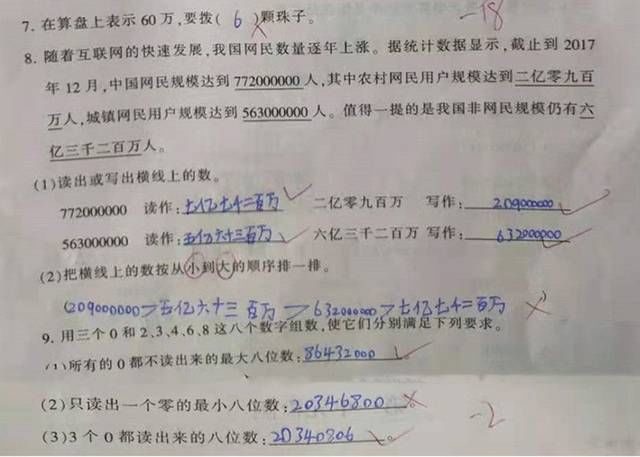 7. 在算盘上表示60万,要拨( 6 )颗珠子。 -18
8. 随着互联网的快速发展,我国网民数量逐年上涨。据统计数据显示,截止到2017
年12月,中国网民规模达到772000000人,其中农村网民用户规模达到二亿零九百
万人,城镇网民用户规模达到563000000人。值得一提的是我国非网民规模仍有六
亿三千二百万人。
(1)读出或写出横线上的数。
772000000 读作:七亿七千二百万 二亿零九百万 写作:209000000
563000000 读作:五亿六十三百万 六亿三千二百万 写作:632000000
(2)把横线上的数按从小到大的顺序排一排。
(209000000>五亿六十三百万>632000000>七亿七千二百万)
9. 用三个0和2、3、4、6、8这八个数字组数,使它们分别满足下列要求。
(1)所有的0都不读出来的最大八位数:86432000。
(2)只读出一个零的最小八位数:20346800。 -2
(3)3个0都读出来的八位数:20340806。